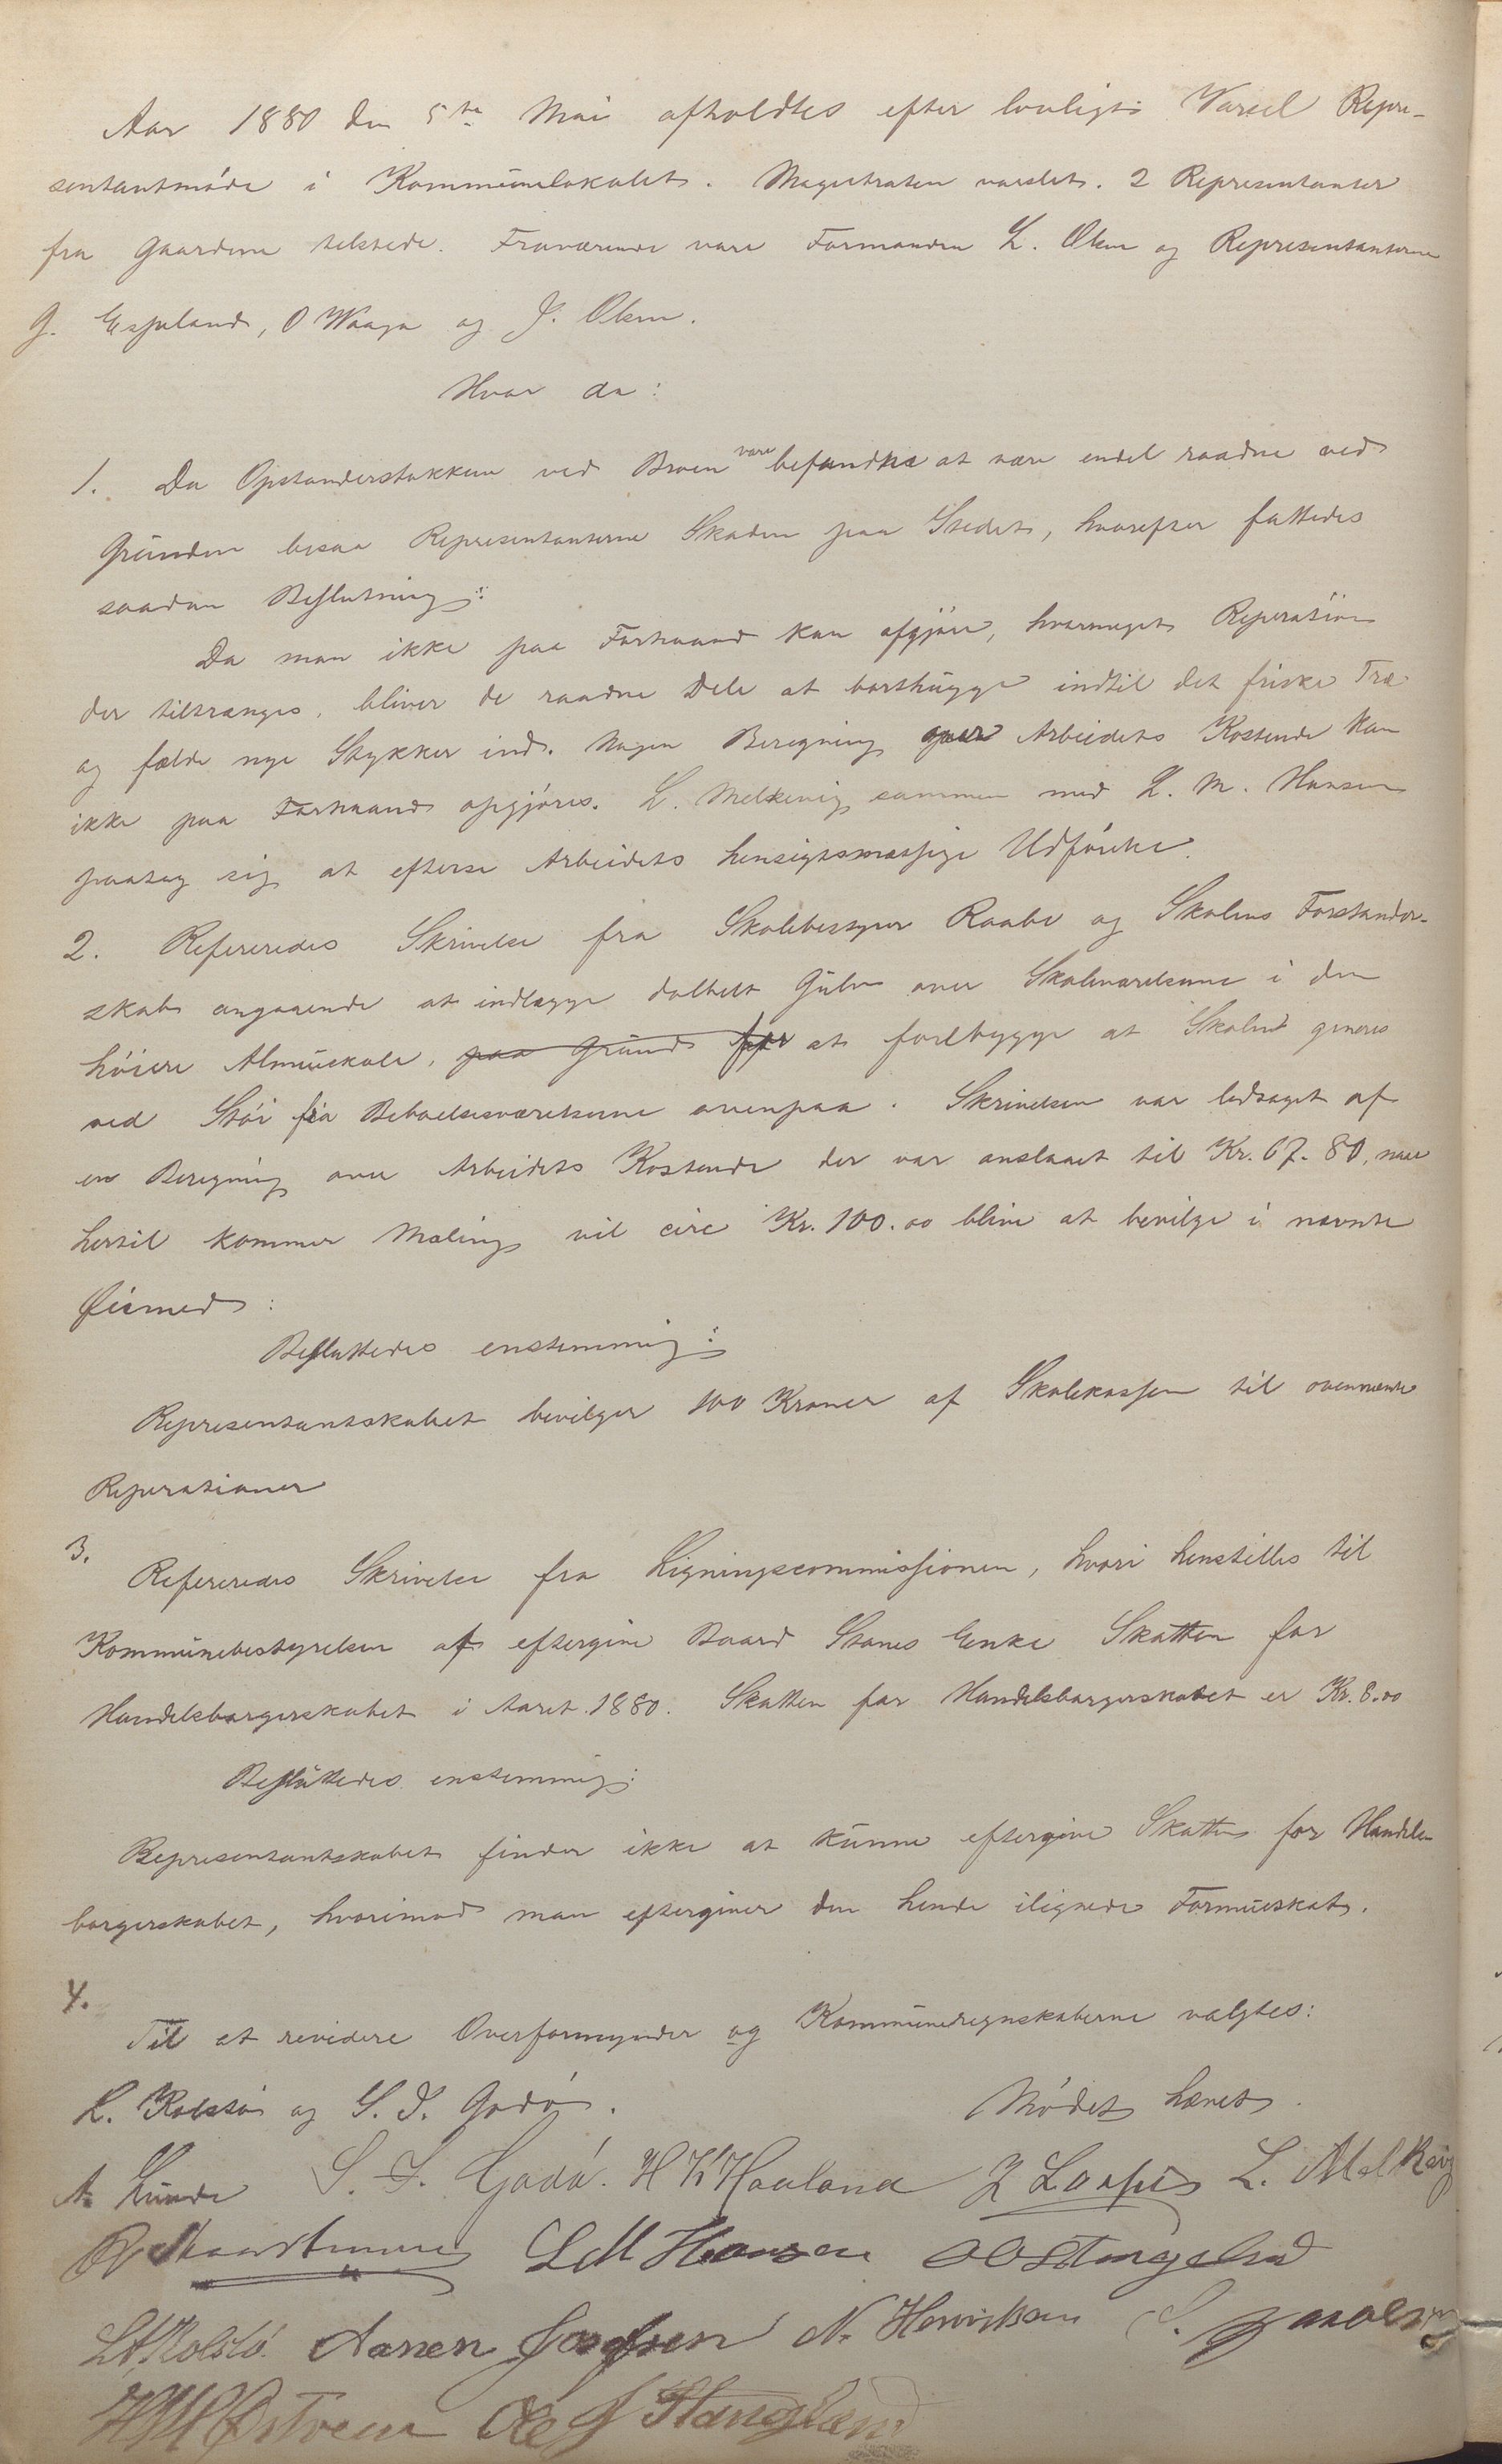 Aar 1880 den 5te Mai afholdtes efter lovligt Varsel Repre-
sentantmøde i Kommunelokalet. Magistraten varslet. 2 Representanter
fra Gaardene tilstede. Fraværende vare Formanden L. Olsen og Representanterne
G. Espeland, O Waage og J. Olsen.
Hvor da:
1. Da Opstanderstokkene ved Broen vare befundne at være endel raadne ved
Grunden besaa Representanterne Skaden paa Stedet, hvorefter fattedes
saadan Beslutning:
Da man ikke paa Forhaand kan afgjøre, hvormeget Reperation
der tiltrænges, bliver de raadne Dele at borthugge indtil det friske Træ
og fælde nye Stykker ind. Nogen Beregning over Arbeidets Kostende kan
ikke paa Forhaand opgjøres. L. Melkevig sammen med L. M. Hansen
paatog sig at efterse Arbeidets hensigtsmæssige Udførelse.
2. Refereredes Skrivelse fra Skolebestyrer Raabe og Skolens Forstander-
skab angaaende at indlægge dobbelt Gulv over Skoleværelserne i den
høiere Almueskole, paa Grund for at forebygge at Skolen generes
ved Støi fra Beboelsesværelserne ovenpaa. Skrivelsen var ledsaget af
en Beregning over Arbeidets Kostende der var anslaaet til Kr. 67.80, naar
hertil kommer Maling vil circ Kr. 100.00 blive at bevilge i nævnte
Øiemed:
Besluttedes enstemmig:
Representantskabet bevilger 100 Kroner af Skolekassen til ovennævnte
Reperationer
3.
Refereredes Skrivelse fra Ligningscommissionen, hvori henstilles til
Kommunebestyrelsen at eftergive Baard Stanes Enke Skatten for
Handelsborgerskabet i Aaret 1880. Skatten for Handelsborgerskabet er Kr. 8.00
Besluttedes enstemmig:
Representantskabet finder ikke at kunne eftergive Skatten for Handels-
borgerskabet, hvorimod man eftergiver den hende ilignede Formueskat.
4.
Til at revidere Overformynder og Kommuneregnskaberne valgtes:
L. Kolstø og S. I. Godø. Mødet hævet.
A. Lunde S. I. Godø. H K Haaland L. Melkevig
L M Hansen O O Stangeland
L A Kolstø. Aanen Josefsen N. Henriksen
Ole J Stangeland